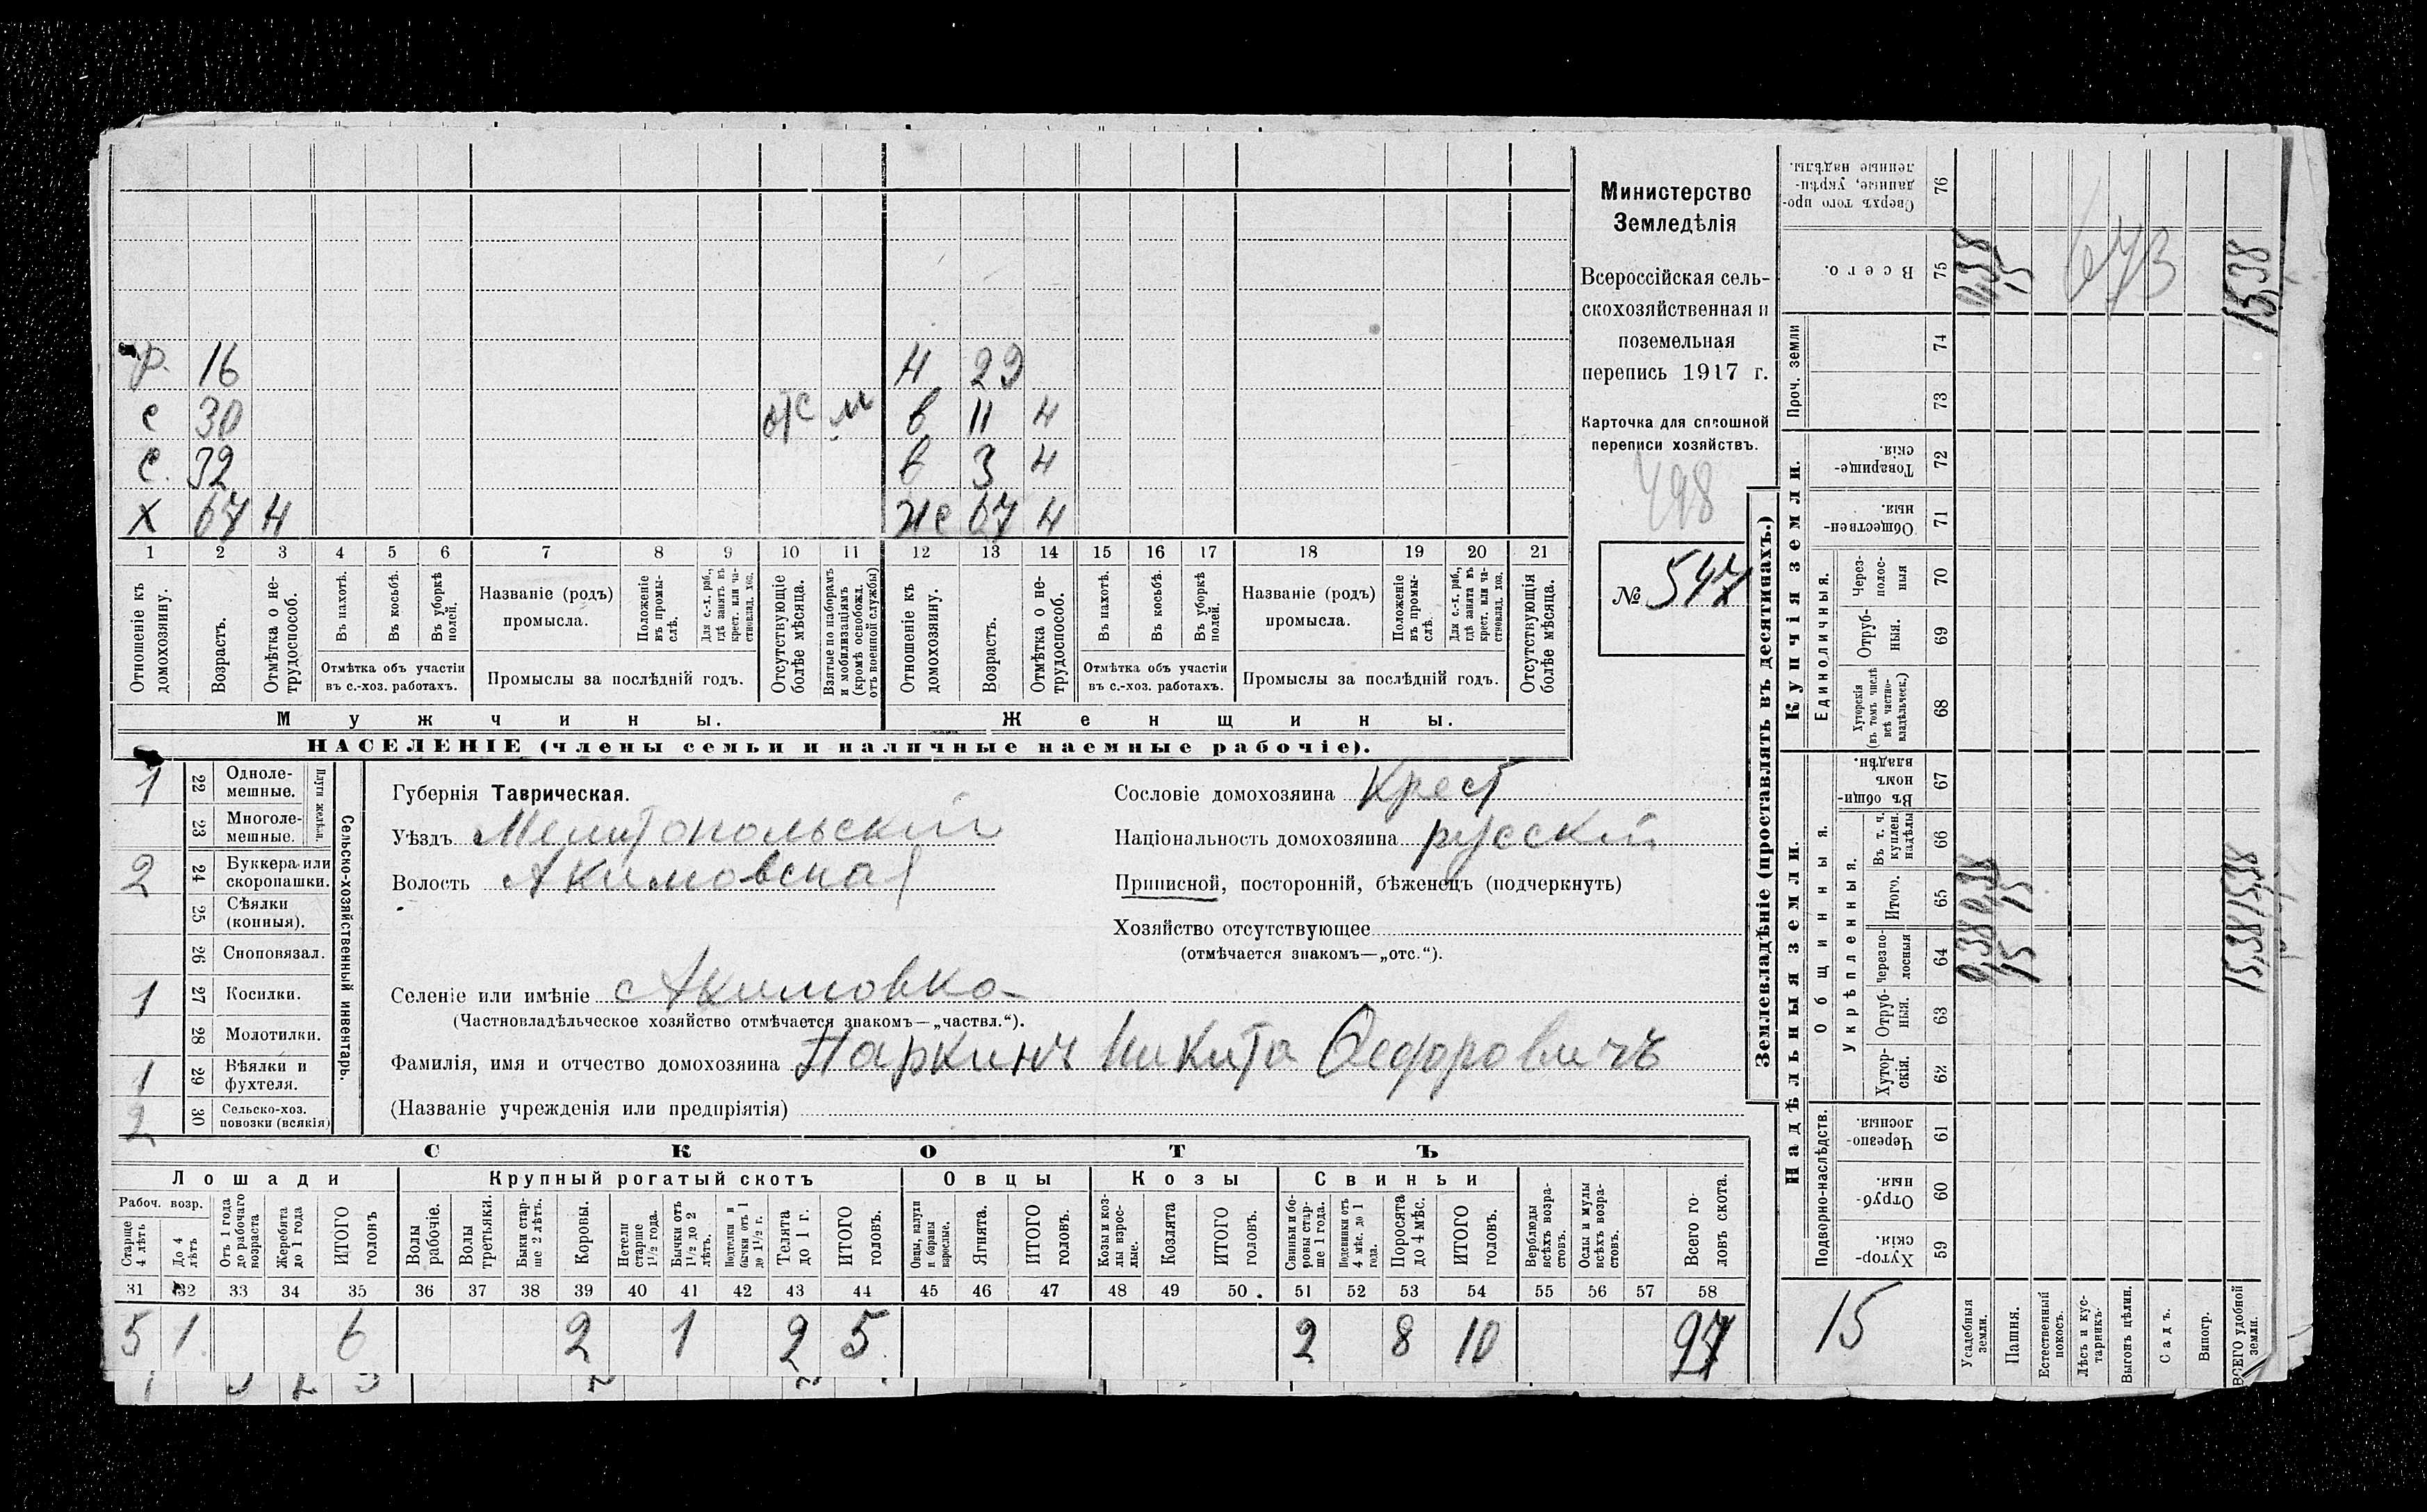 р. 16 н 29
с 30 отс м в 11 н
с. 32 в 3 н
х 67 н же 67 н
1 2 3 4 5 6 7 8 9 10 11 12 13 14 15 16 17 18 19 20 21
Отношеніе къ домохозяину.
Возрастъ.
Отмѣтка о не-трудоспособ.
Въ пахотѣ.
Въ косьбѣ.
Въ уборкѣ полей.
Отмѣтка объ участіи въ с.-хоз. работахъ.
Названіе (родъ) промысла.
Положеніе въ промы-слѣ.
Для с.-х. раб., гдѣ занятъ въ крест. или ча-стновлад. хоз.
Промыслы за послѣдній годъ.
Отсутствующіе болѣе мѣсяца.
Взятые по наборамъ и мобилизаціямъ (кромѣ освобожд. отъ военной службы)
Отношеніе къ домохозяину.
Возрастъ.
Отмѣтка о не-трудоспособ.
Въ пахотѣ.
Въ косьбѣ.
Въ уборкѣ полей.
Отмѣтка объ участіи въ с.-хоз. работахъ.
Названіе (родъ) промысла.
Положеніе въ промы-слѣ.
Для с.-х. раб., гдѣ занята въ крест. или ча-стновлад. хоз.
Промыслы за послѣдній годъ.
Отсутствующія болѣе мѣсяца.
Мужчины.
Женщины.
НАСЕЛЕНІЕ (члены семьи и наличные наемные рабочіе).
Министерство
Земледѣлія
Всероссійская сель-
скохозяйственная и
поземельная
перепись 1917 г.
Карточка для сплошной
переписи хозяйствъ.
498
№ 547
1 22 Одноле-мешные.
23 Многоле-мешные.
Плуги желѣзн.
2 24 Буккера или скоропашки.
25 Сѣялки (конныя).
26 Сноповязал.
1 27 Косилки.
28 Молотилки.
1 29 Вѣялки и фухтеля.
2 30 Сельско-хоз. повозки (всякія)
Сельско-хозяйственный инвентарь.
Губернія Таврическая.
Уѣздъ Мелитопольскій
Волость Акимовская
Сословіе домохозяина Крест
Національность домохозяина русскій
Приписной, посторонній, бѣженецъ (подчеркнуть)
Хозяйство отсутствующее
(отмѣчается знакомъ—„отс.“).
Селеніе или имѣніе с Акимовка
(Частновладѣльческое хозяйство отмѣчается знакомъ—„частвл.“).
Фамилія, имя и отчество домохозяина Паркинъ Никита Ѳедоровичъ
(Названіе учрежденія или предпріятія)
СКОТЪ
Лошади
Крупный рогатый скотъ
Овцы
Козы
Свиньи
Рабоч. возр.
Старше 4 лѣтъ
До 4 лѣтъ
Отъ 1 года до рабочаго возраста
Жеребята до 1 года
ИТОГО головъ
Волы рабочіе.
Волы третьяки.
Быки стар-ше 2 лѣтъ.
Коровы.
Нетели старше 1½ года.
Бычки отъ 1½ до 2 лѣтъ.
Подтелки и бычки отъ 1 до 1½ г.
Телята до 1 г.
ИТОГО головъ.
Овцы, валухи и бараны взрослые.
Ягнята.
ИТОГО головъ.
Козы и коз-лы взрос-лые.
Козлята
ИТОГО головъ.
Свиньи и бо-ровы стар-ше 1 года.
Подсвинки отъ 4 мѣс. до 1 года.
Поросята до 4 мѣс.
ИТОГО головъ.
Верблюды всѣхъ возра-стовъ.
Ослы и мулы всѣхъ возра-стовъ.
Всего го-ловъ скота.
31 32 33 34 35 36 37 38 39 40 41 42 43 44 45 46 47 48 49 50 51 52 53 54 55 56 57 58
5 1 6 2 1 2 5 2 8 10
Землевладѣніе (проставлять въ десятинахъ.)
Надѣльныя земли.
Купчія земли.
Проч. земли
Подворно-наслѣдств.
Общинныя.
Укрѣпленныя.
Единоличныя.
Сверхъ того про-данные, укрѣп-ленные надѣлы. 76
Всего. 75 0,38 15 673 15,38
74
73
Товарище-скія. 72
Обществен-ныя. 71
Через-полос-ныя 70
Отруб-ныя. 69
Хуторскія (въ томъ числѣ всѣ частно-владѣльческ.) 68
Въ общин-номъ владѣн. 67
Въ т. ч. куплен. надѣлы 66
Итого. 65 0,38 15 15,38
Через по-лосныя 64 0,38 15 15,38
Отруб-ныя. 63
Хутор-скія. 62
Черезпо-лосныя. 61
Отруб-ныя. 60
Хутор-скія. 59
15
Усадебныя земли.
Пашня.
Естественный покосъ.
Лѣсъ и кус-тарникъ.
Выгонъ цѣлин.
Садъ.
Виногр.
ВСЕГО удобной земли.